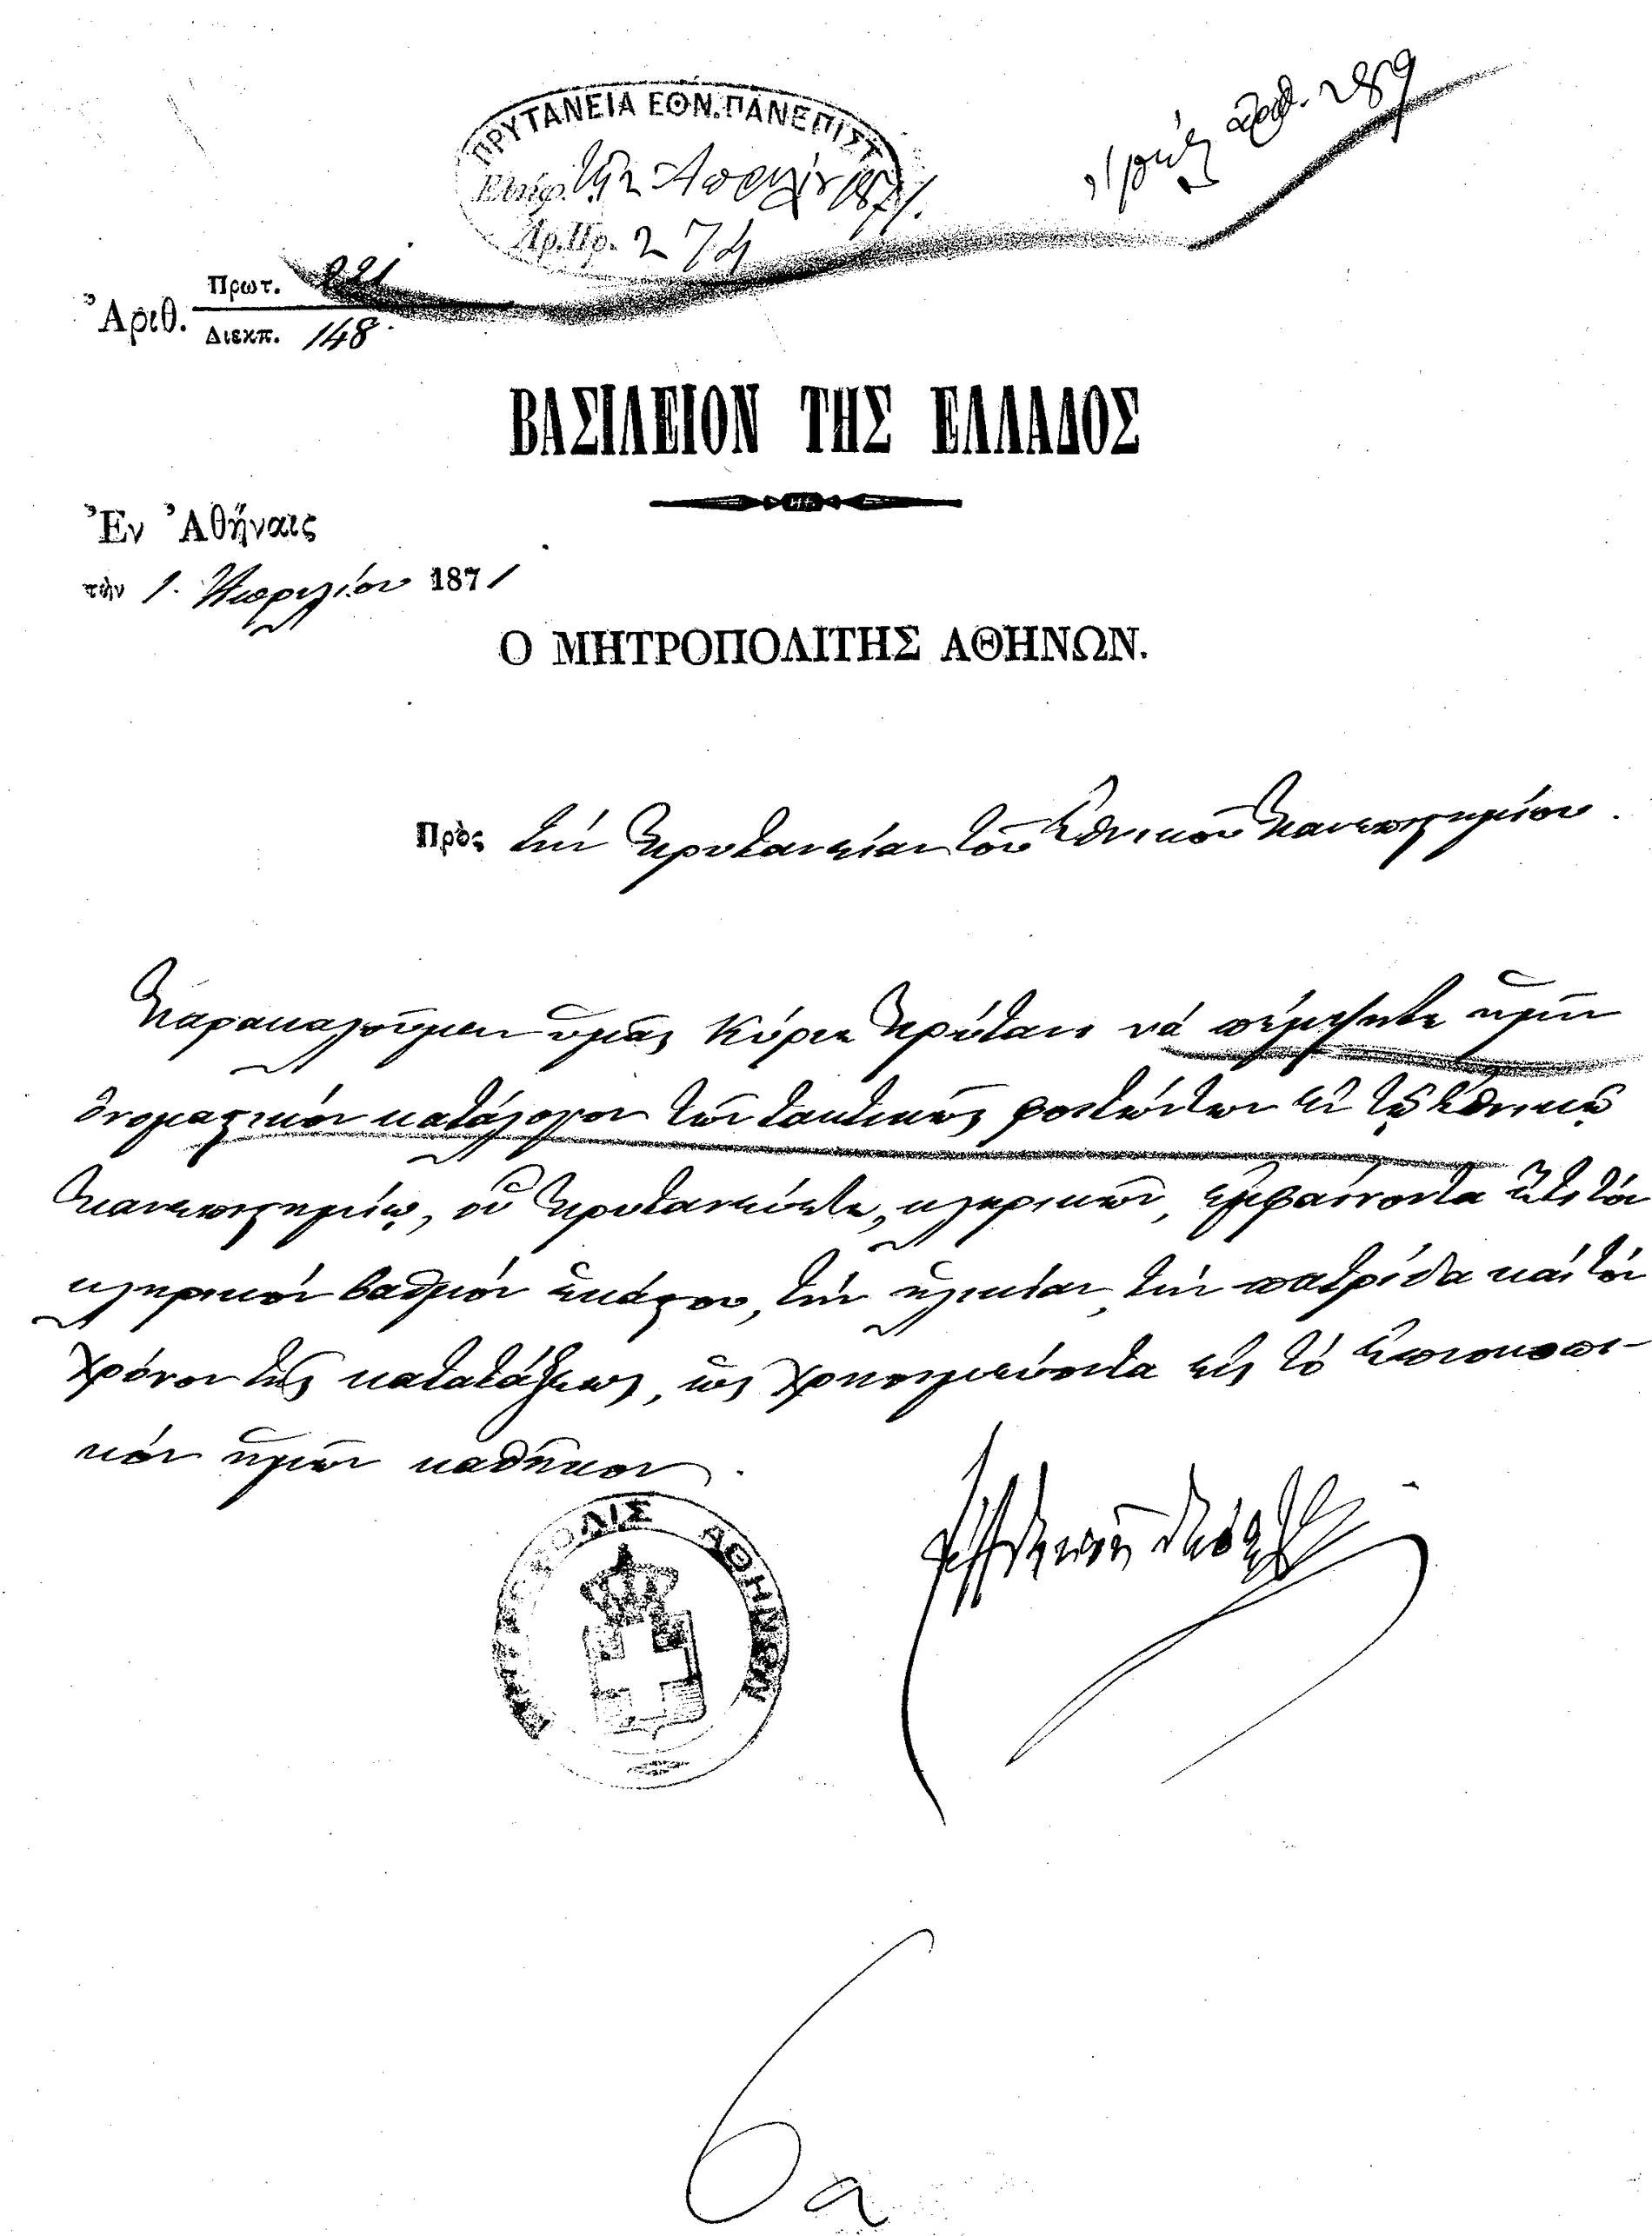 ΠΡΥΤΑΝΕΙΑ ΕΘΝ. ΠΑΝΕΠΙΣΤ
Ἐλήφ. τῇ 2 Ἀπριλίου 1871.
Ἀρ. Πρ. 274
ἀριθ. 289
Ἀριθ. Πρωτ. 221
Διεκπ. 148
ΒΑΣΙΛΕΙΟΝ ΤΗΣ ΕΛΛΑΔΟΣ
Ἐν Ἀθήναις
τὴν 1. Ἀπριλίου 1871
Ο ΜΗΤΡΟΠΟΛΙΤΗΣ ΑΘΗΝΩΝ.
Πρὸς τὴν Πρυτανείαν τοῦ Ἐθνικοῦ Πανεπιστημίου.
Παρακαλοῦμεν ὑμᾶς Κύριε Πρύτανι νά πέμψητε ἡμῖν
ὀνομαστικόν κατάλογον τῶν τακτικῶς φοιτώντων ἐν τῷ Ἐθνικῷ
Πανεπιστημίῳ, οὗ Πρυτανεύετε, κληρικῶν, ἐμφαίνοντα ἔτι τόν
κληρικόν βαθμόν ἑκάστου, τήν ἡλικίαν, τήν πατρίδα καί τόν
χρόνον τῆς κατατάξεως, ὡς χρησιμεύοντα εἰς τό ἐπισκοπι-
κόν ἡμῶν καθῆκον.
ΜΗΤΡΟΠΟΛΙΣ ΑΘΗΝΩΝ
6α